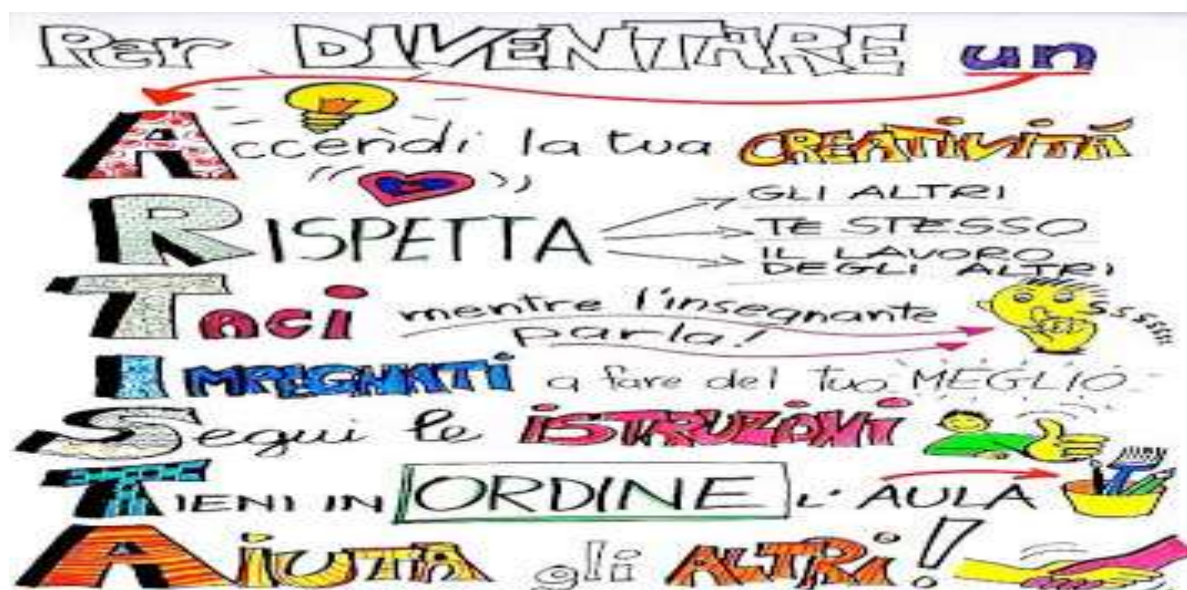 Per DIVENTARE un
Accendi la tua CREATIVITÁ
RISPETTA
GLI ALTRI
TE STESSO
IL LAVORO
DEGLI ALTRI
Taci mentre l'insegnante
parla!
Sssssss
IMPEGNATI a fare del tuo MEGLIO
Segui le ISTRUZIONI
TIENI IN ORDINE L'AULA
AIUTA gli ALTRI!